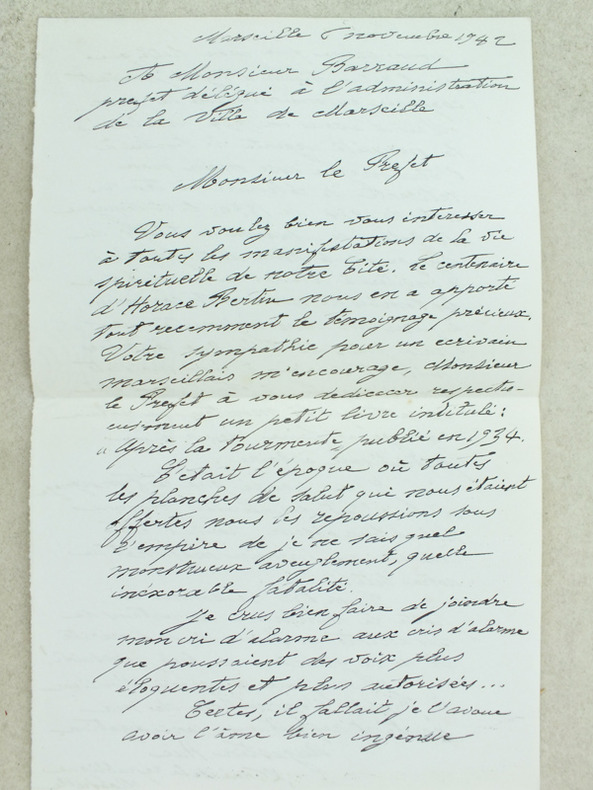 Marseille 6 novembre 1942
A Monsieur Barraud
prefet délégué à l'administration
de la Ville de Marseille
Monsieur le Prefet
Vous voulez bien vous interesser
à toutes les manifestations de la vie
spirituelle de notre Cité. Le centenaire
d'Horace Bertin nous en a apporté
tout recemment le témoignage précieux.
Votre sympathie pour un ecrivain
marseillais m'encourage, Monsieur
le Prefet à vous dedicacer respectu-
eusement un petit livre intitulé:
"Après la tourmente" publié en 1934.
C'etait l'époque où toutes
les planches de salut qui nous étaient
offertes nous les repoussions sous
l'empire de je ne sais quel
monstrueux aveuglement, quelle
inéxorable fatalité.
Je crus bien faire de joindre
mon cri d'alarme aux cris d'alarme
que poussaient des voix plus
éloquentes et plus autorisées...
Certes, il fallait je l'avoue
avoir l'âme bien ingénue